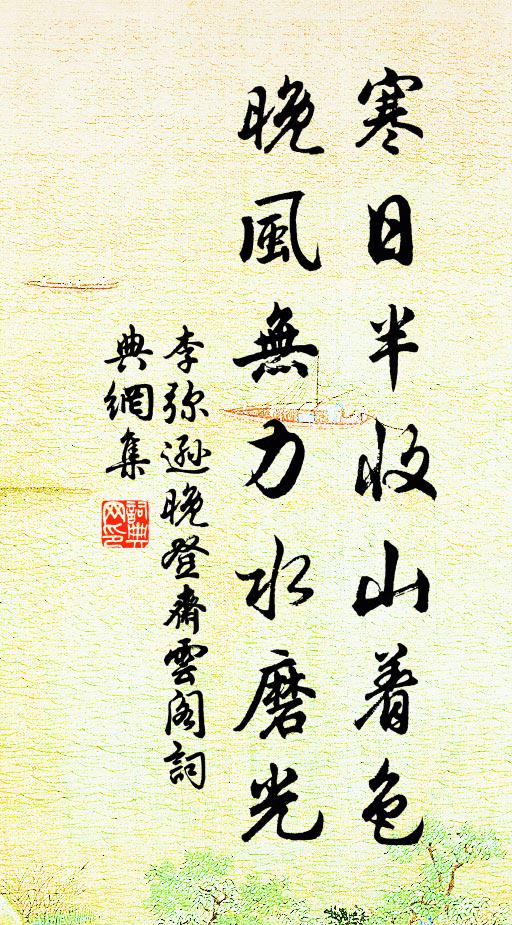 寒日半收山着色
晚風無力水磨光
李弥遜晚登齋雲阁詞
典網集
詞典网印